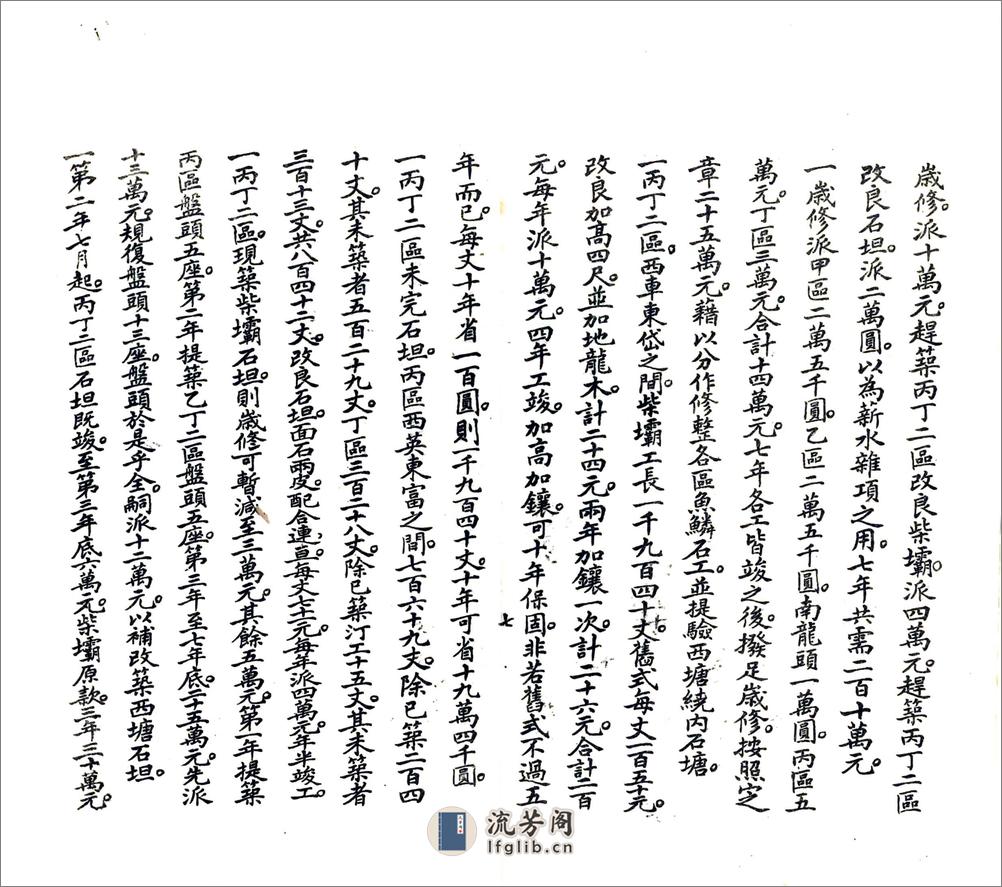 歲修。派十萬元。趕築丙丁二區改良柴壩。派四萬元。趕築丙丁二區
改良石坦。派二萬圓。以為薪水雜項之用。七年共需二百十萬元。
一歲修派甲區二萬五千圓。乙區二萬五千圓。南龍頭一萬圓。丙區五
萬元。丁區三萬元。合計十四萬元。七年各工皆竣之後。撥足歲修。按照定
章二十五萬元。藉以分作修整各區魚鱗石工。並提驗西塘繞內石塘。
一丙丁二區。西車東岱之間。柴壩工長一千九百四十丈。舊式每丈一百五十元。
改良加高四尺。並加地龍木。計二十四元。兩年加鑲一次。計二十六元。合計二百
元。每年派十萬元。四年工竣。加高加鑲。可十年保固。非若舊式不過五
七
年而已。每丈十年省一百圓。則一千九百四十丈。十年可省十九萬四千圓。
一丙丁二區未完石坦。丙區西英東富之間。七百六十九丈。除已築二百四
十丈。其未築者五百二十九丈。丁區三百二十八丈。除已築汀工十五丈。其未築者
三百十三丈。共八百四十二丈。改良石坦面石兩皮。配合連亘。每丈七十元。每年派四萬元。年半竣工。
一丙丁二區。現築柴壩石坦。則歲修可暫減至三萬元。其餘五萬元。第一年提築
丙區盤頭五座。第二年提築乙丁二區盤頭五座。第三年至七年底。二十五萬元。先派
十三萬元。規復盤頭十三座。盤頭於是乎全。嗣派十二萬元。以補改築西塘石坦。
一第二年七月起。丙丁二區石坦既竣。至第三年底六萬元。柴壩原款。三年三十萬元。
流芳阁
lfglib.cn